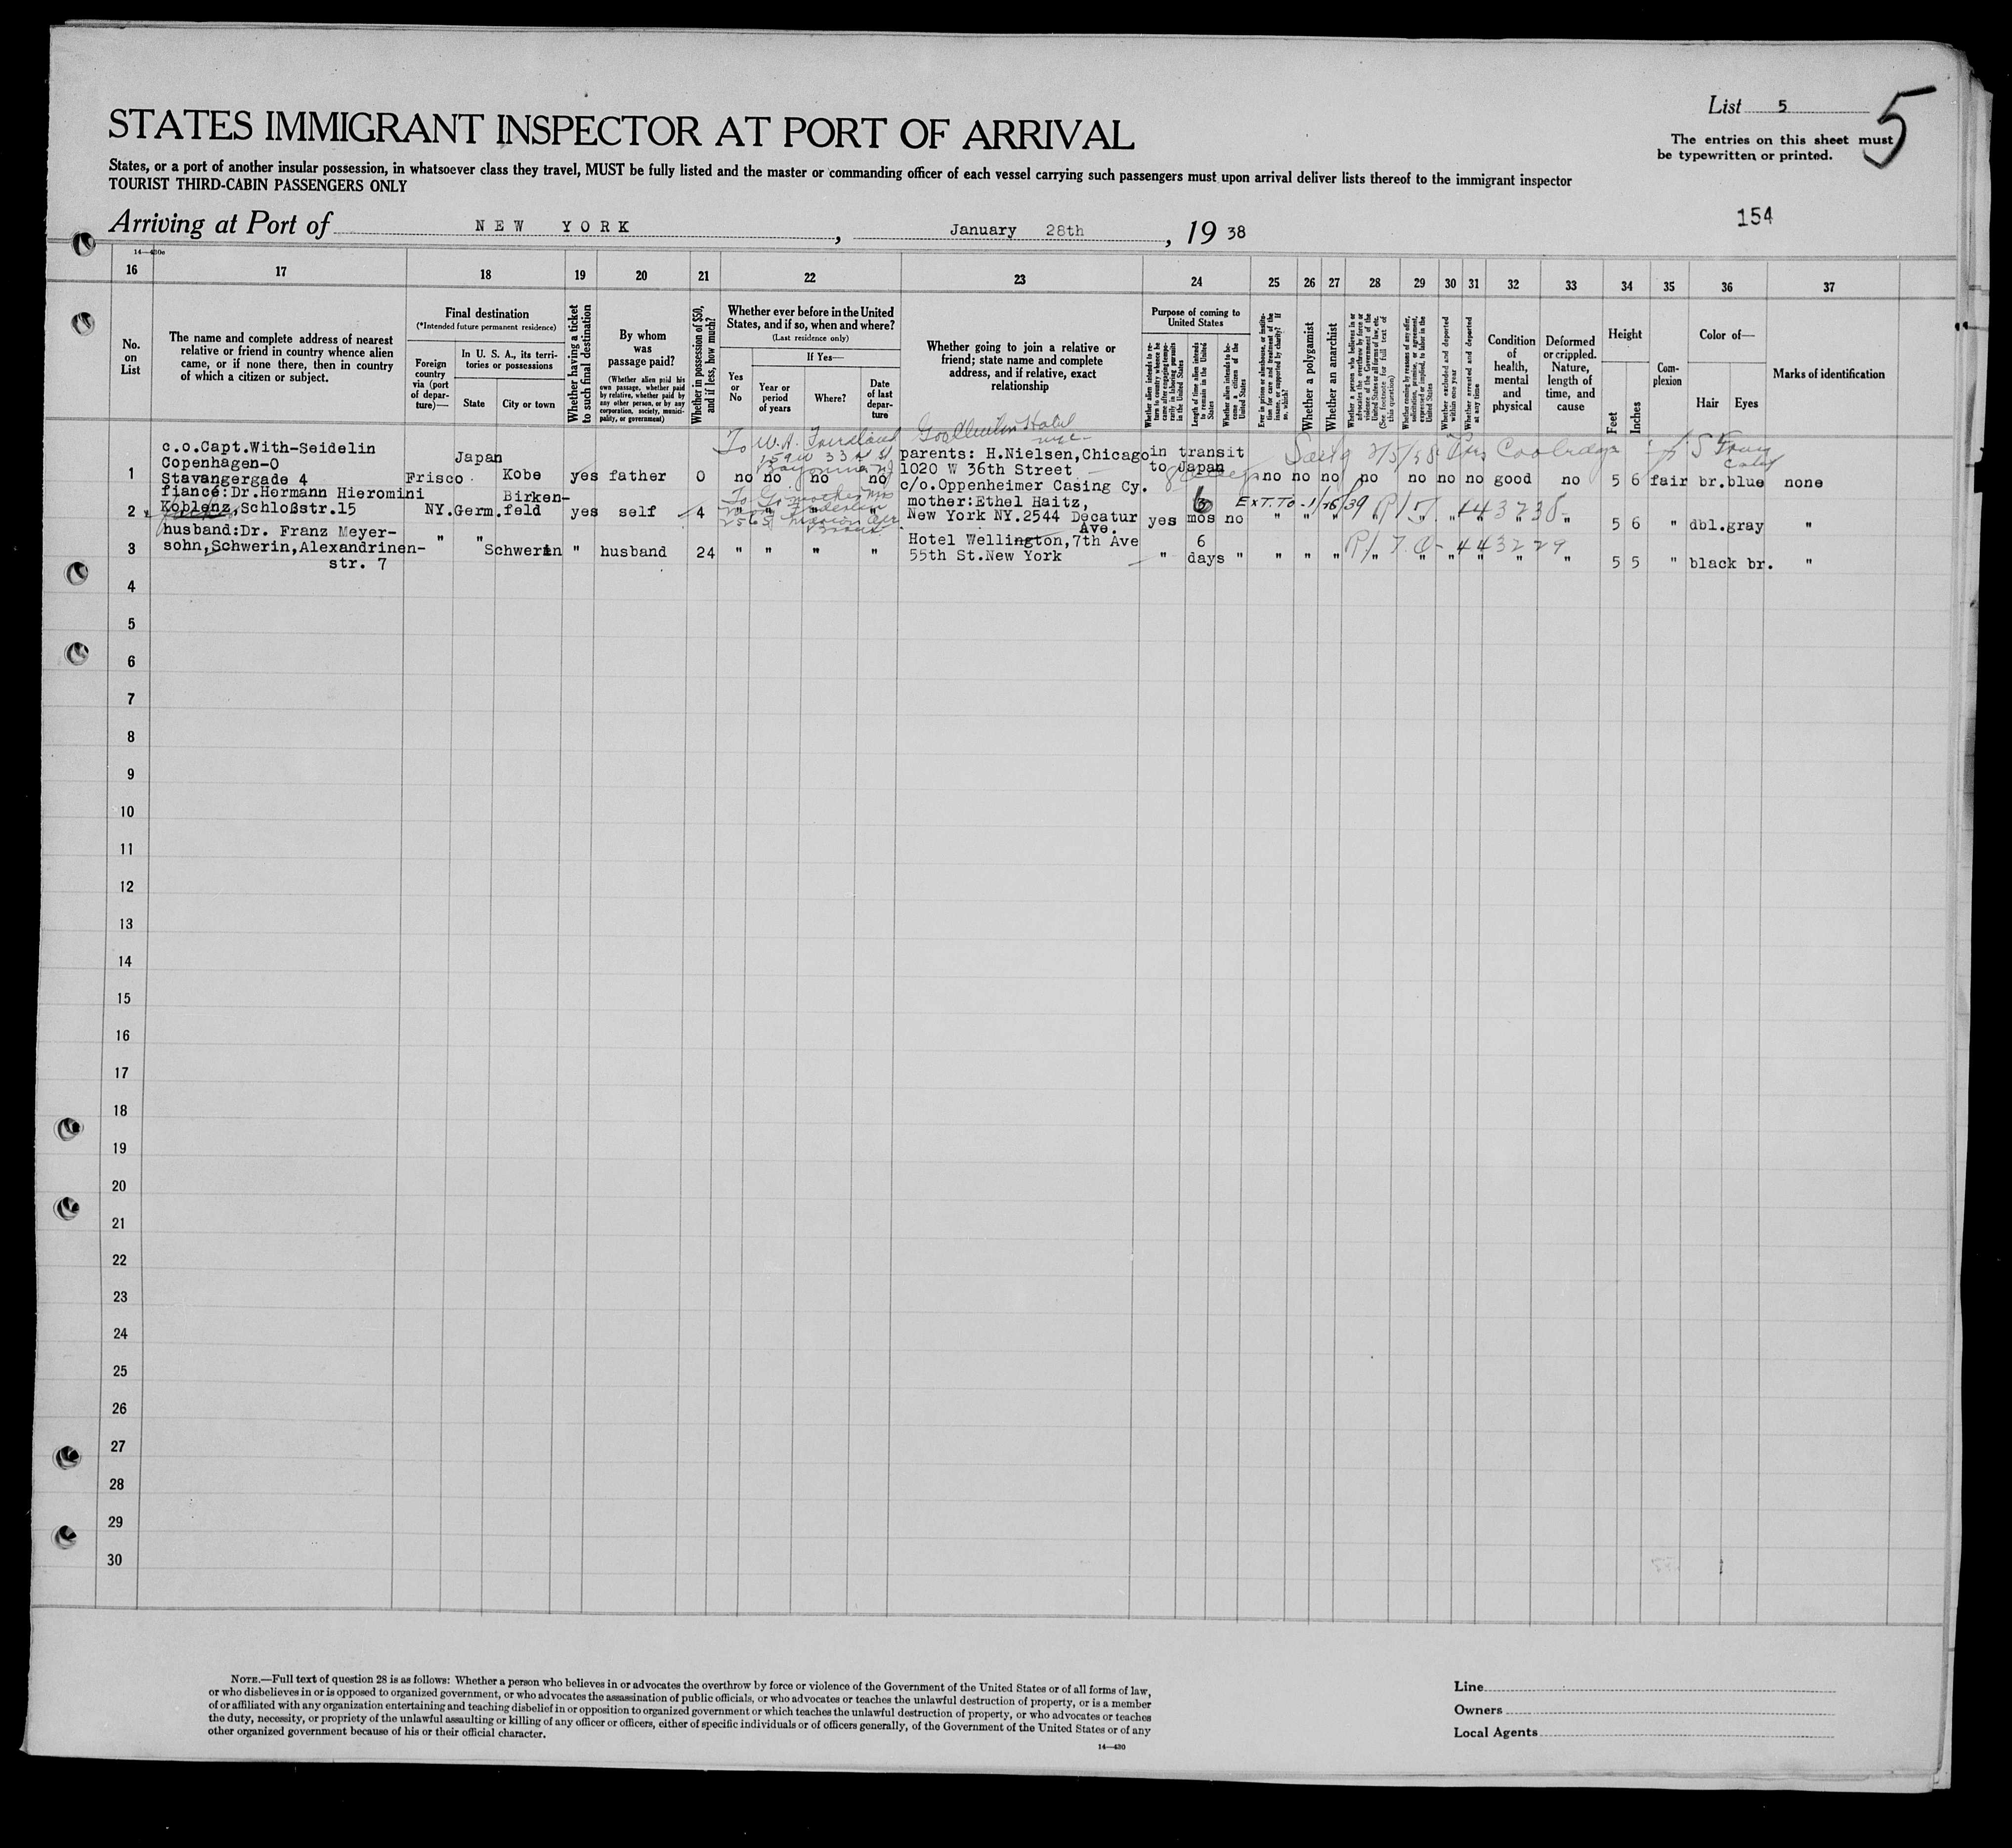 List 5
5
STATES IMMIGRANT INSPECTOR AT PORT OF ARRIVAL
The entries on this sheet must
be typewritten or printed.
States, or a port of another insular possession, in whatsoever class they travel, MUST be fully listed and the master or commanding officer of each vessel carrying such passengers must upon arrival deliver lists thereof to the immigrant inspector
TOURIST THIRD-CABIN PASSENGERS ONLY
154
Arriving at Port of NEW YORK, January 28th, 19 38
14—430e
16 17 18 19 20 21 22 23 24 25 26 27 28 29 30 31 32 33 34 35 36 37
No. on List
The name and complete address of nearest
relative or friend in country whence alien
came, or if none there, then in country
of which a citizen or subject.
Final destination
(*Intended future permanent residence)
Foreign country via (port of departure)—
In U. S. A., its territories or possessions
State
City or town
Whether having a ticket to such final destination
By whom was passage paid?
(Whether alien paid his own passage, whether paid by relative, whether paid by any other person, or by any corporation, society, municipality, or government)
Whether in possession of $50, and if less, how much?
Whether ever before in the United
States, and if so, when and where?
(Last residence only)
Yes or No
If Yes—
Year or period of years
Where?
Date of last departure
Whether going to join a relative or
friend; state name and complete
address, and if relative, exact
relationship
Purpose of coming to United States
Whether alien intends to return to country whence he came after engaging temporarily in laboring pursuits in the United States
Length of time alien intends to remain in the United States
Whether alien intends to become a citizen of the United States
Ever in prison or almshouse, or institution for care and treatment of the insane, or supported by charity? If so, which?
Whether a polygamist
Whether an anarchist
Whether a person who believes in or advocates the overthrow by force or violence of the Government of the United States or of all forms of law, etc. (See footnote for full text of this question)
Whether coming by reasons of any offer, solicitation, promise, or agreement, expressed or implied, to labor in the United States
Whether excluded and deported within one year
Whether arrested and deported at any time
Condition of health, mental and physical
Deformed or crippled. Nature, length of time, and cause
Height
Feet
Inches
Complexion
Color of—
Hair
Eyes
Marks of identification
To W.A.
Hotel
159 W 33d St
Bayonne NJ
c.o.Capt.With-Seidelin
Copenhagen-O
Stavangergade 4
1 Frisco Japan Kobe yes father 0 no no no no
parents: H.Nielsen,Chicago
1020 W 36th Street
c/o.Oppenheimer Casing Cy.
in transit
to Japan
2/5/38 Pres Coolidge
no no no no no no no good no 5 6 fair br. blue none
fiancé:Dr.Hermann Hieromini
2 Koblenz,Schloßstr.15
NY. Germ. Birken-
feld yes self 4 " " " "
2565 Marion Ave
Bronx
mother:Ethel Haitz,
New York NY.2544 Decatur
Ave.
yes 6 mos no
Ext. To - 1/25/39
" " " " " " " " " 5 6 " dbl. gray "
husband:Dr. Franz Meyer-
3 sohn,Schwerin,Alexandrinen-
str. 7
" " Schwerin " husband 24 " " " "
Hotel Wellington,7th Ave
55th St.New York
" 6 days "
443229
" " " " " " " " " 5 5 " black br. "
4
5
6
7
8
9
10
11
12
13
14
15
16
17
18
19
20
21
22
23
24
25
26
27
28
29
30
NOTE.—Full text of question 28 is as follows: Whether a person who believes in or advocates the overthrow by force or violence of the Government of the United States or of all forms of law,
or who disbelieves in or is opposed to organized government, or who advocates the assassination of public officials, or who advocates or teaches the unlawful destruction of property, or is a member
of or affiliated with any organization entertaining and teaching disbelief in or opposition to organized government or which teaches the unlawful destruction of property, or who advocates or teaches
the duty, necessity, or propriety of the unlawful assaulting or killing of any officer or officers, either of specific individuals or of officers generally, of the Government of the United States or of any
other organized government because of his or their official character.
14—430
Line
Owners
Local Agents